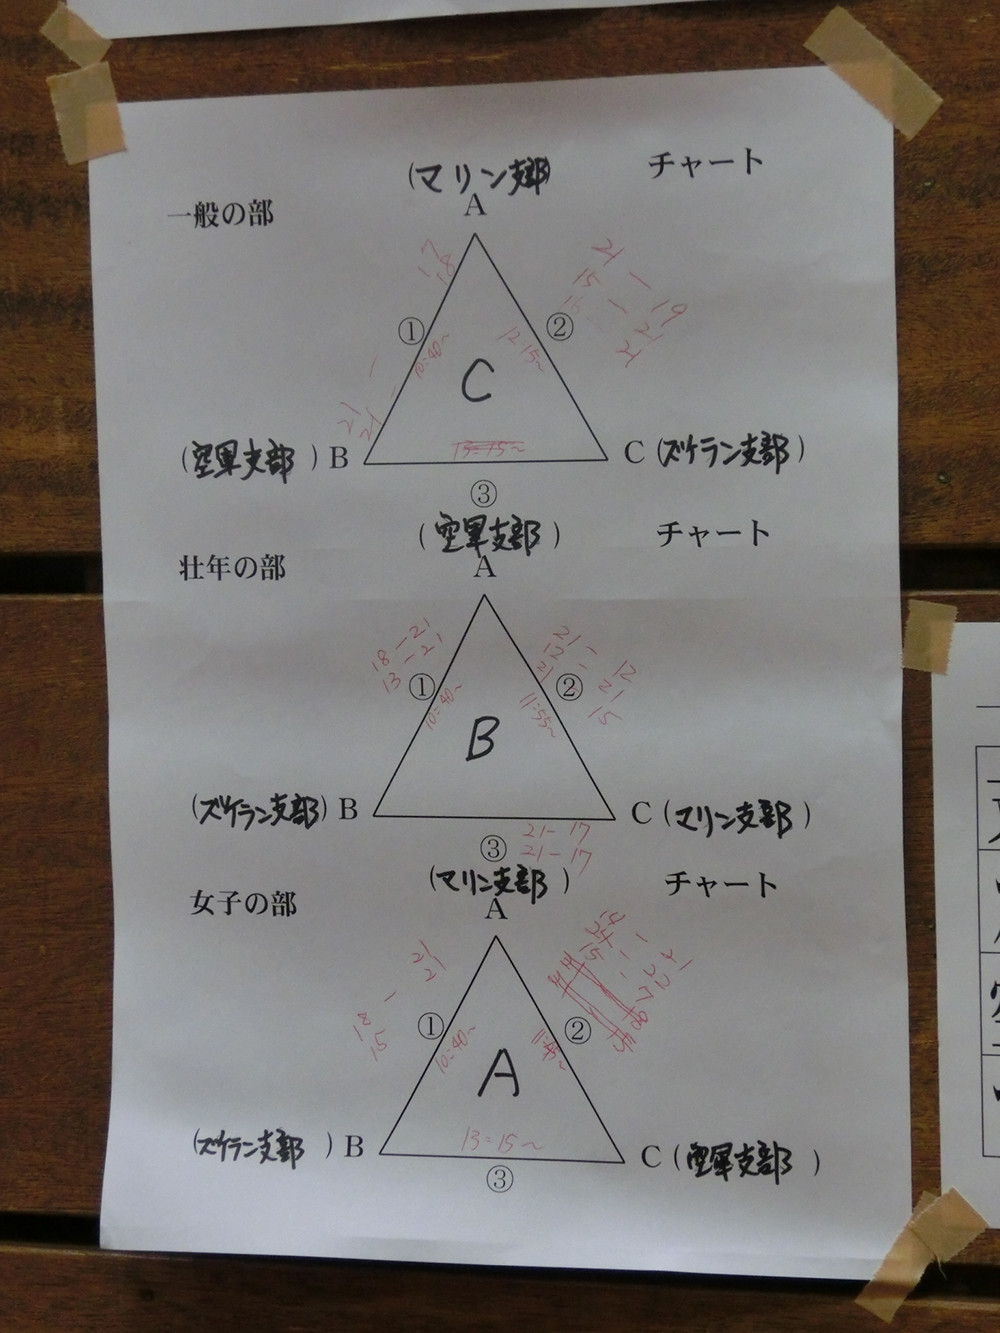 (マリン支部)
チャート
一般の部
A
17
18
21 - 19
15 - 21
21
①
②
10:40~
12:15~
C
21
21
(空軍支部)B
13:15~
C(ズケラン支部)
③
(空軍支部)
チャート
壮年の部
A
18-21
13-21
21-12
12-21
21-15
①
②
10:40~
11:55~
B
(ズケラン支部)B
C(マリン支部)
③
21-17
21-17
(マリン支部)
チャート
女子の部
A
21
21
18
15
①
②
10:40~
A
(ズケラン支部)B
13:15~
C(空軍支部)
③